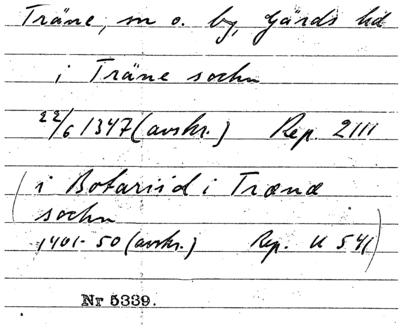 Träne, sn o. by, Gärds hd
i Träne sochn
22/6 1347 (avskr.) Rep. 2111
(i Botariid i Trænæ
sochn
1401-50 (avskr.) Rep. U 541)
Nr 5339.